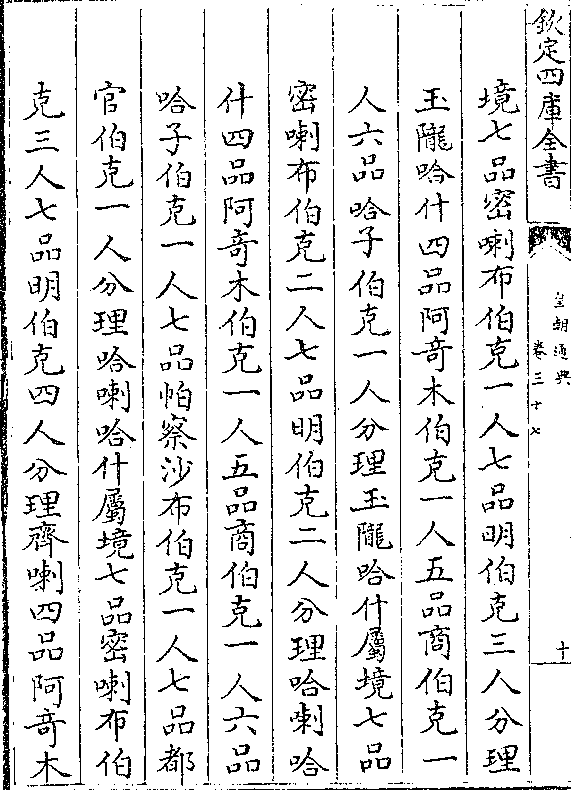 欽定四庫全書
皇朝通典
卷三十七
十
境七品密喇布伯克一人七品明伯克三人分理
玉隴哈什四品阿竒木伯克一人五品商伯克一
人六品哈子伯克一人分理玉隴哈什屬境七品
密喇布伯克二人七品明伯克二人分理哈喇哈
什四品阿竒木伯克一人五品商伯克一人六品
哈子伯克一人七品帕察沙布伯克一人七品都
官伯克一人分理哈喇哈什屬境七品密喇布伯
克三人七品明伯克四人分理齊喇四品阿竒木